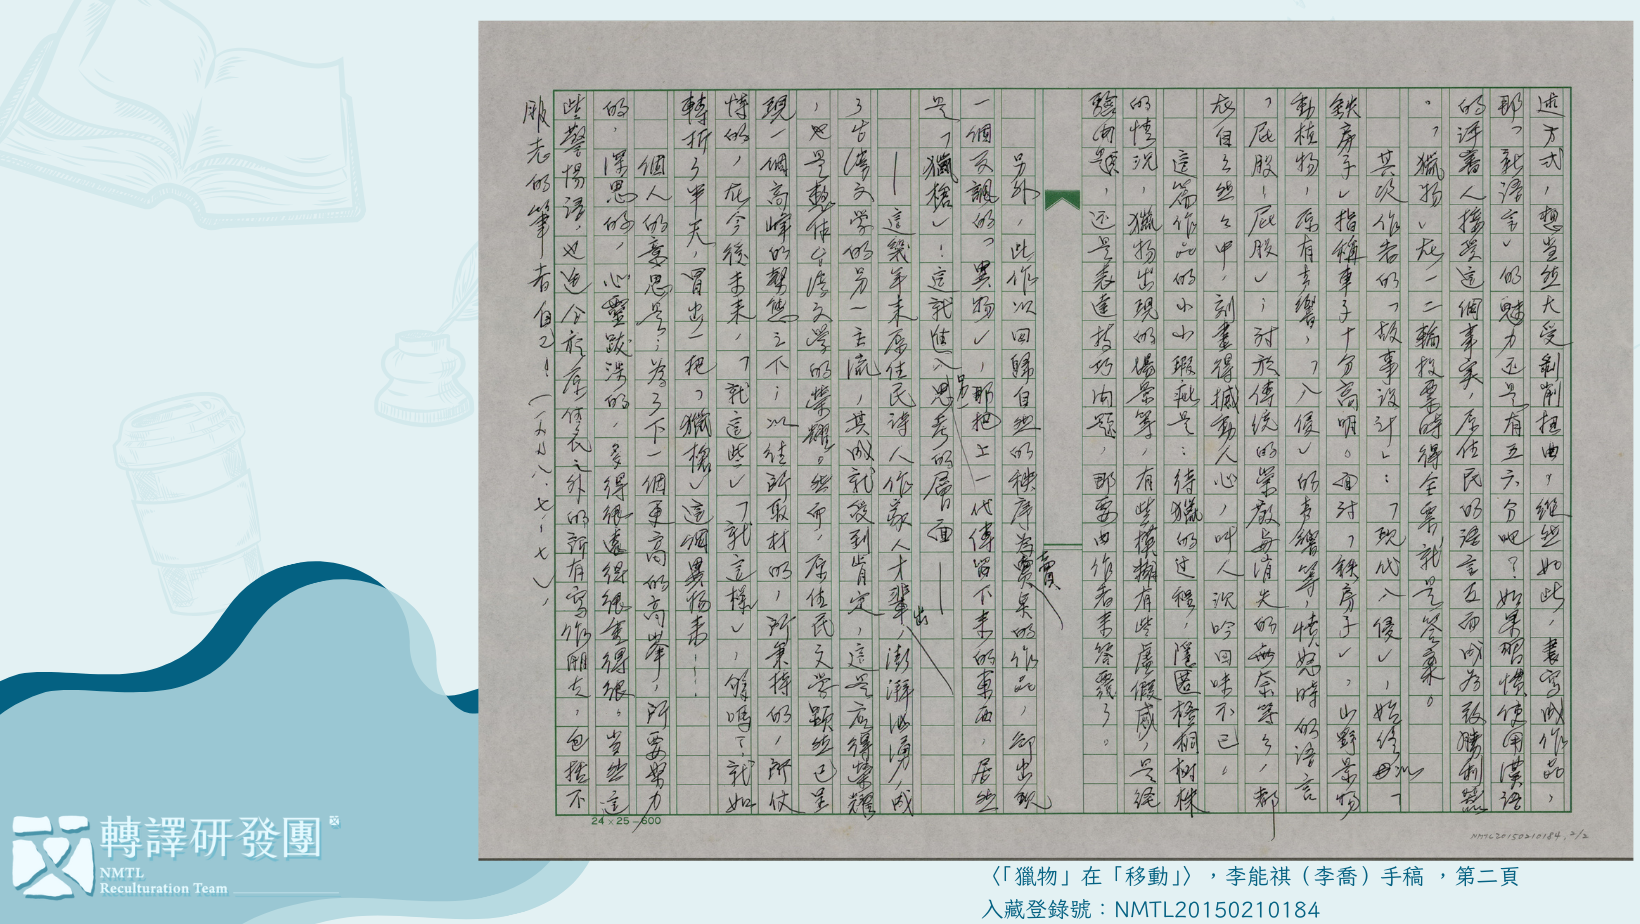 述方式，想当然大受剝削扭曲，縱然如此，書写成作品，
那「新语言」的魅力还是有五六分吧？如果習慣使用漢语
的评審人接受這個事实，原住民的语言互而成为致勝利器
。「獵物」在一二輪投票時得全票就是答案。
其次作者的「故事设计」：「現代入侵」，始终以「
鉄房子」指稱車子十分高明。面对「鉄房子」，山野景物
動植物，原有音響，「入侵」的声繪等，憤怒時的语言
，「屁股！屁股」；对於傳统的崇敬与消失的無奈等々，都
在自々然々中，刻畫得撼動人心，叫人沉吟回味不已。
這篇作品的小小瑕疵是：待獵的过程，隱匿梧桐树株
的情況，獵物出現的場景等，有些模糊有些虛假感，是经
驗问题，还是表達技巧问题，那要由作者来答覆了。
另外，此作以回歸自然的秩序为
賣
一個反諷的「異物」，那把上一代傳留下来的東西，居然
另一
是「獵槍」！這就進入思考的層面——
——這幾年来原住民诗人作家人才輩出，澎湃汹湧，成
了台湾文学的另一主流，其成就受到肯定，這是应得榮耀
，也是整体台湾文学的榮耀。然而，原住民文学顯然已呈
現一個高峰的態势之下；以往所取材的，所秉持的，所仗
恃的，在今後未来，「就這些」「就這樣」，够嗎？就如
轉折了半天，冒出一把「獵槍」這個異物来！！
個人的意思是：为了下一個更高的高峯，所要努力
的，深思的，心靈跋涉的，多得很遠得很重得很。当然這
些警惕语，也適合於原住民之外的所有写作朋友，包括不
服老的筆者自己！（一九九八．七．一七）
24×25=600
NMTL20150210184, 2/2
〈「獵物」在「移動」〉，李能祺（李喬）手稿 ，第二頁
入藏登錄號：NMTL20150210184
轉譯研發團
NMTL
Reculturation Team